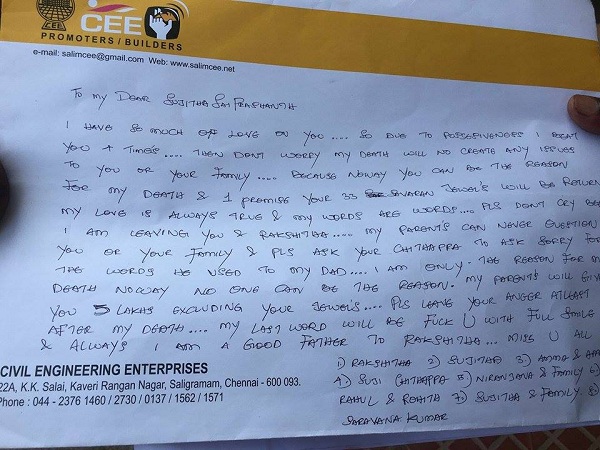 CEE
CEE
PROMOTERS / BUILDERS
e-mail: salimcee@gmail.com Web: www.salimcee.net
To my Dear Sujitha Sai Prashanth
I have so much of love on you.... So due to possesiveness I beat
you 4 time's.... Then dont worry my death will no create any issues
to you or your family.... Because noway you can be the reason
for my death & I promise your 33 savaran jewel's will be return
my love is always true & my words are words.... Pls dont cry
I am leaving you & Rakshitha.... my parent's can never question
you or your family & pls ask your chithappa to ask sorry for
the words he used to my dad.... I am only. The reason for my
death noway no one can be the reason. my parent's will give
you 5 lakhs excluding your jewel's.... Pls leave your anger atleast
after my death.... my last word will be fuck U with full smile
& always I am a good father to Rakshitha... miss U all
1) Rakshitha 2) Sujitha 3) Amma &
4) Suji Chithappa 5) Niranjana & family 6)
Rahul & Rohita 7) Sujitha & family 8)
Saravana Kumar
CIVIL ENGINEERING ENTERPRISES
22A, K.K. Salai, Kaveri Rangan Nagar, Saligramam, Chennai - 600 093.
Phone : 044 - 2376 1460 / 2730 / 0137 / 1562 / 1571